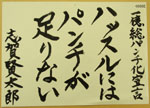 一億総パンチ化宣言
ハッスルには
パンチが
足りない
志賀賢太郎